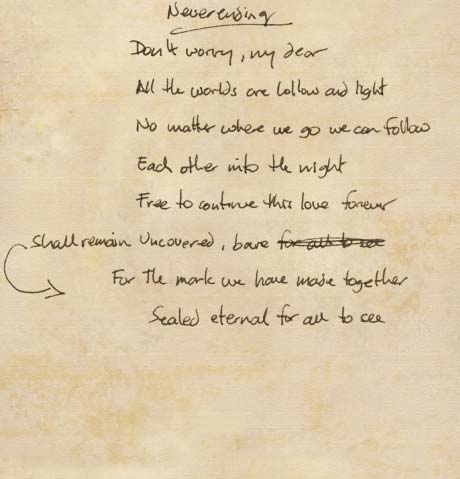 Neverending
Don't worry, my dear
All the worlds are hollow and light
No matter where we go we can follow
Each other into the night
Free to continue this love forever
Shall remain Uncovered, bare for all to see
For the mark we have made together
Sealed eternal for all to see